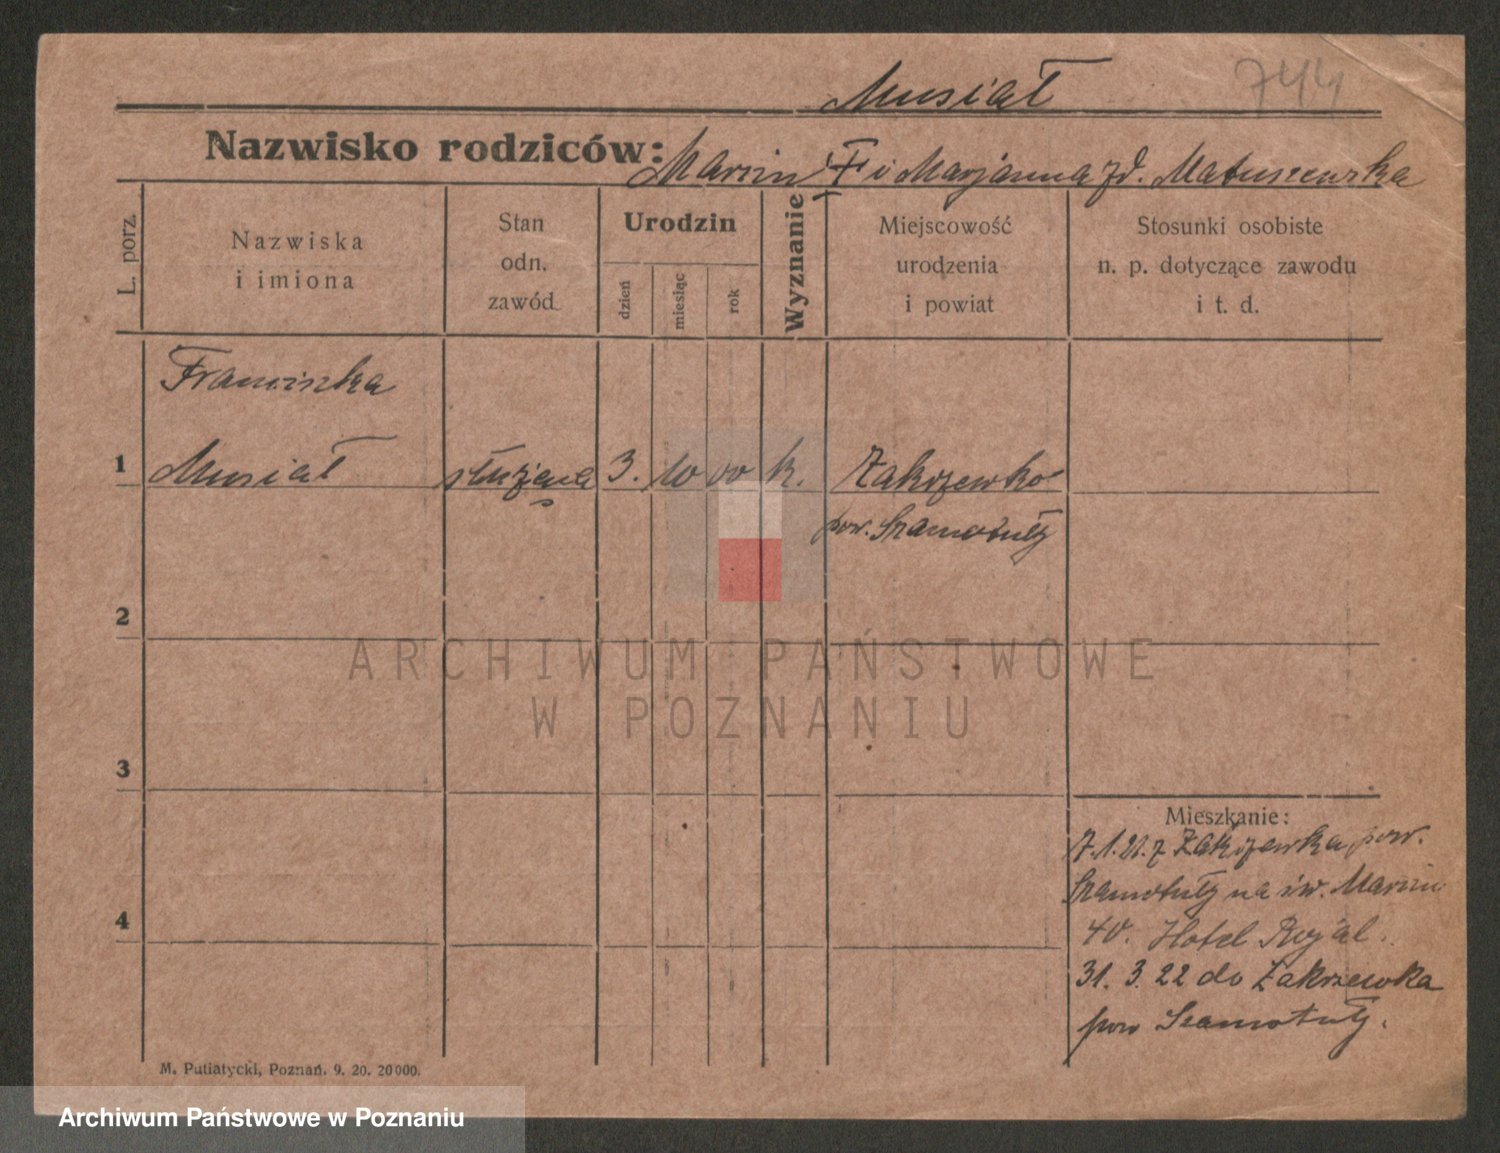 Musiał
744
Nazwisko rodziców: Marcin i Marjanna zd. Matuszewska
L. porz.
Nazwiska
i imiona
Stan
odn.
zawód
Urodzin
dzień
miesiąc
rok
Wyznanie
Miejscowość
urodzenia
i powiat
Stosunki osobiste
n. p. dotyczące zawodu
i t. d.
Franciszka
1 Musiał służąca 3. 10 00 k. Zakrzewko
pow. Szamotuły
2
3
4
ARCHIWUM PAŃSTWOWE
W POZNANIU
Mieszkanie:
7.1.21. z Zakrzewka pow.
Szamotuły na św. Marcin
40. Hotel Rojal.
31. 3. 22 do Zakrzewka
pow Szamotuły.
M. Putiatycki, Poznań. 9. 20. 20000.
Archiwum Państwowe w Poznaniu